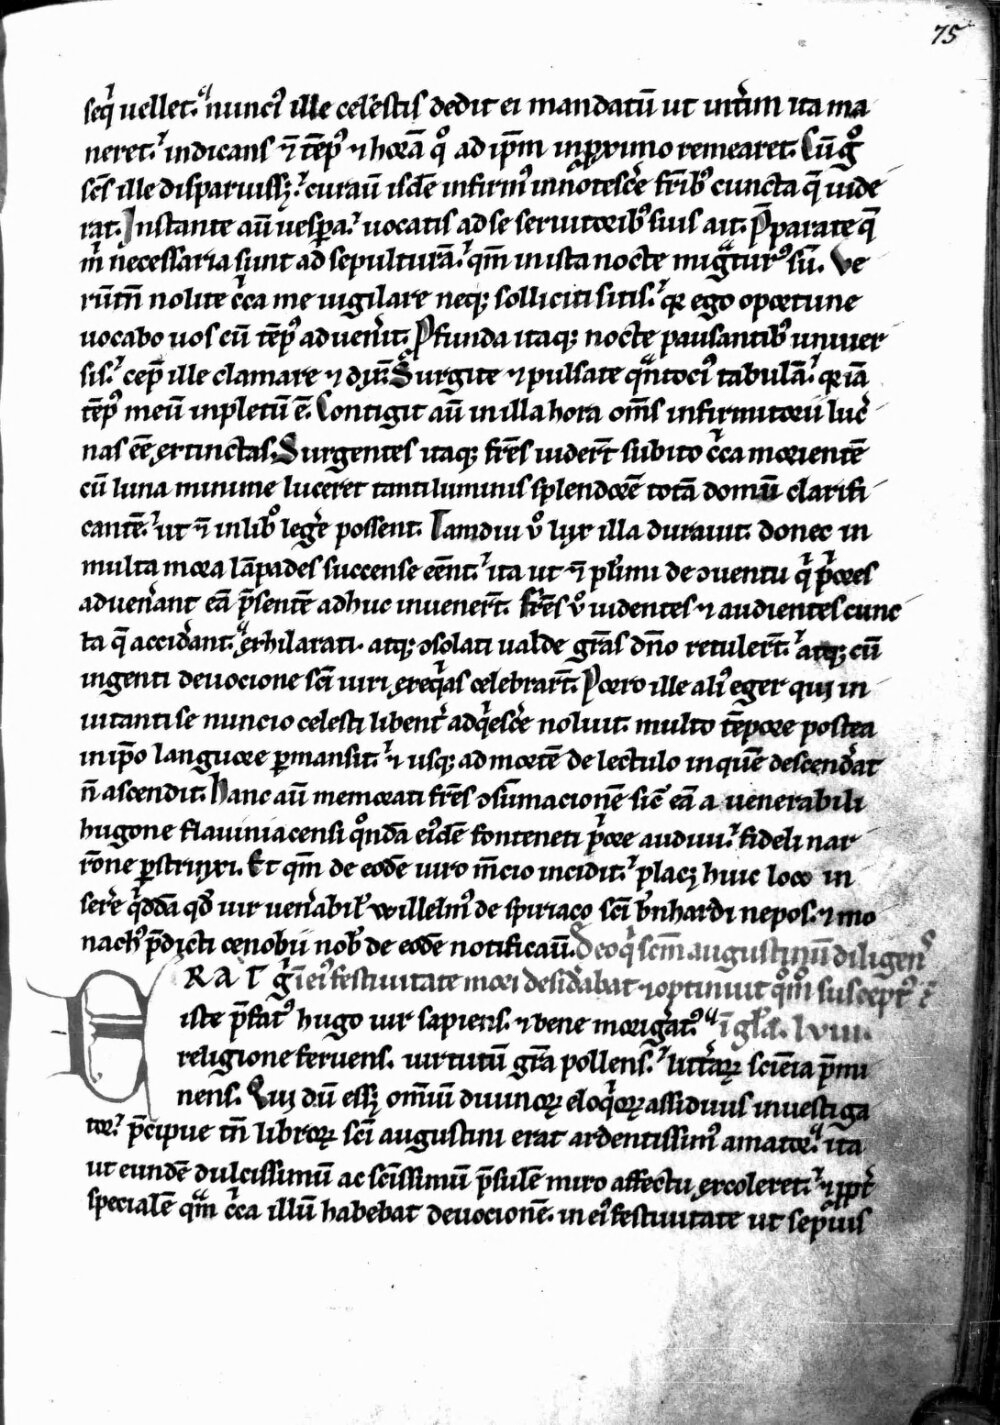 75
seqͥ uellet. nunci᷒ ille celestis dedit ei mandatū ut int̾im ita ma
neret. indicans ⁊ tēp᷒ ⁊ horā qͦ ad ip̄m in ꝓximo remearet. Cūqͦ
scs̄ ille disparuissꝫ. curauit isdē infirm᷒ innotesc̾e fr̄ib᷒ cuncta q̄ uide
rat. Instante aū uesꝑa. uocatis ad se seruitorib᷒ suis ait. P̄parate q̄
m̾ necessaria sunt ad sepulturā. qm̄ in ista nocte migͣtur᷒ sū. Ve
rūtn̄ nolite c̾ca me uigilare neqꝫ solliciti sitis. qꝛ ego oportune
uocabo uos cū tēp᷒ aduen̾it. ꝓfunda itaqꝫ nocte pausantib᷒ uniuer
sis. cep̄ ille clamare ⁊ dic̾e. Surgite ⁊ pulsate qͣntoci᷒ tabulā. qꝛ iā
tēp᷒ meū inpletū ē. Contigit aū in illa hora om̄s infirmitorii luc̾
nas eē extinctas. Surgentes itaqꝫ fr̄es uider̄t subito c̾ca morientē
cū luna minime luceret tanti luminis splendorē totā domū clarifi
cantē. ut ⁊ in lib᷒ leg̾e possent. Tamdiu u̾o lux illa durauit. donec in
multa mora lāpades succense eēnt. ita ut ⁊ plͥimi de ɔuentu qͥ p̾ores
aduen̾ant eā p̄sentē adhuc inuener̄t. fr̄es u̾o uidentes ⁊ audientes cunc
ta q̄ accid̾ant. exhilarati. atqꝫ ɔsolati ualde gr̄as dn̄o retuler̄t. atqꝫ cū
ingenti deuocione sc̄i uiri exeqͥas celebrar̄t. Porro ille ali᷒ eger qui in
uitanti se nuncio celesti libent̾ adqͥesc̾e noluit. multo tēpore postea
in ip̄o languore ꝑmansit. ⁊ usqꝫ ad mortē de lectulo in quē descend̾at
n̄ ascendit. Hanc aū memorati fr̄is ɔsūmacionē sic̄ eā a uenerabili
hugone flauiniacensi qͦndā ei᷒dē fonteneti p̾ore audiui. fideli nar
rōne ꝑstrinxi. Et qm̄ de eodē uiro m̄cio incidit. placꝫ huic loco in
ser̾e qͥddā qd̾ uir uen̾abil̾ willelm᷒ de spiriaco sc̄i b̾nhardi nepos. ⁊ mo
nach᷒ p̄dicti cenobii nob᷒ de eodē notificauit. De eo qͥ scm̄ augustinū diligens
ERAT gͥ in ei᷒ festiuitate mori desid̾abat ⁊ optinuit qͦmͦ suscept᷒ ē
iste p̄fat᷒ hugo uir sapiens. ⁊ bene morigͣt᷒. ī gl̄ia. lviii.
religione feruens. uirtutū gr̄a pollens. litt̾arꝝ sciēcia p̄mi
nens. Qui dū essꝫ om̄iū diuinorꝝ eloqͥorꝝ assiduus inuestiga
tor. p̄cipue tn̄ librorꝝ sc̄i augustini erat ardentissim᷒ amator. ita
ut eundē dulcissimū ac sc̄issimū p̄sulē miro affectu excoleret. ⁊ ꝓpt̾
specialē qͣm c̾ca illū habebat deuocionē. in ei᷒ festiuitate ut sepi᷒